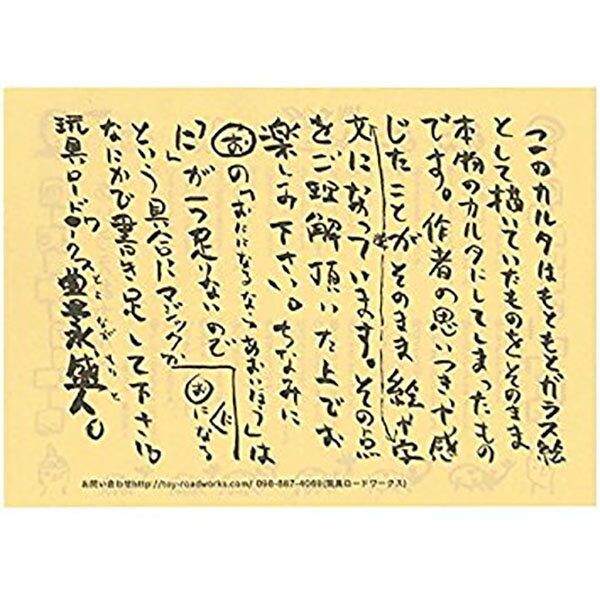 このカルタはもともとガラス絵
として描いていたものをそのまま
本物のカルタにしてしまったもの
です。作者の思いつきや感
じたことがそのまま絵や字
文になっています。その点
をご理解頂いた上でお
楽しみ下さい。ちなみに
おの「おににになるならあおいほう」は
「に」が一つ足りないので
おにになる
という具合にマジックか
なにかで書き足して下さい。
玩具ロードワークス 豊永盛人。
とよ なが もり と
お問い合わせhttp://toy-roadworks.com/ 098-887-4069(玩具ロードワークス)